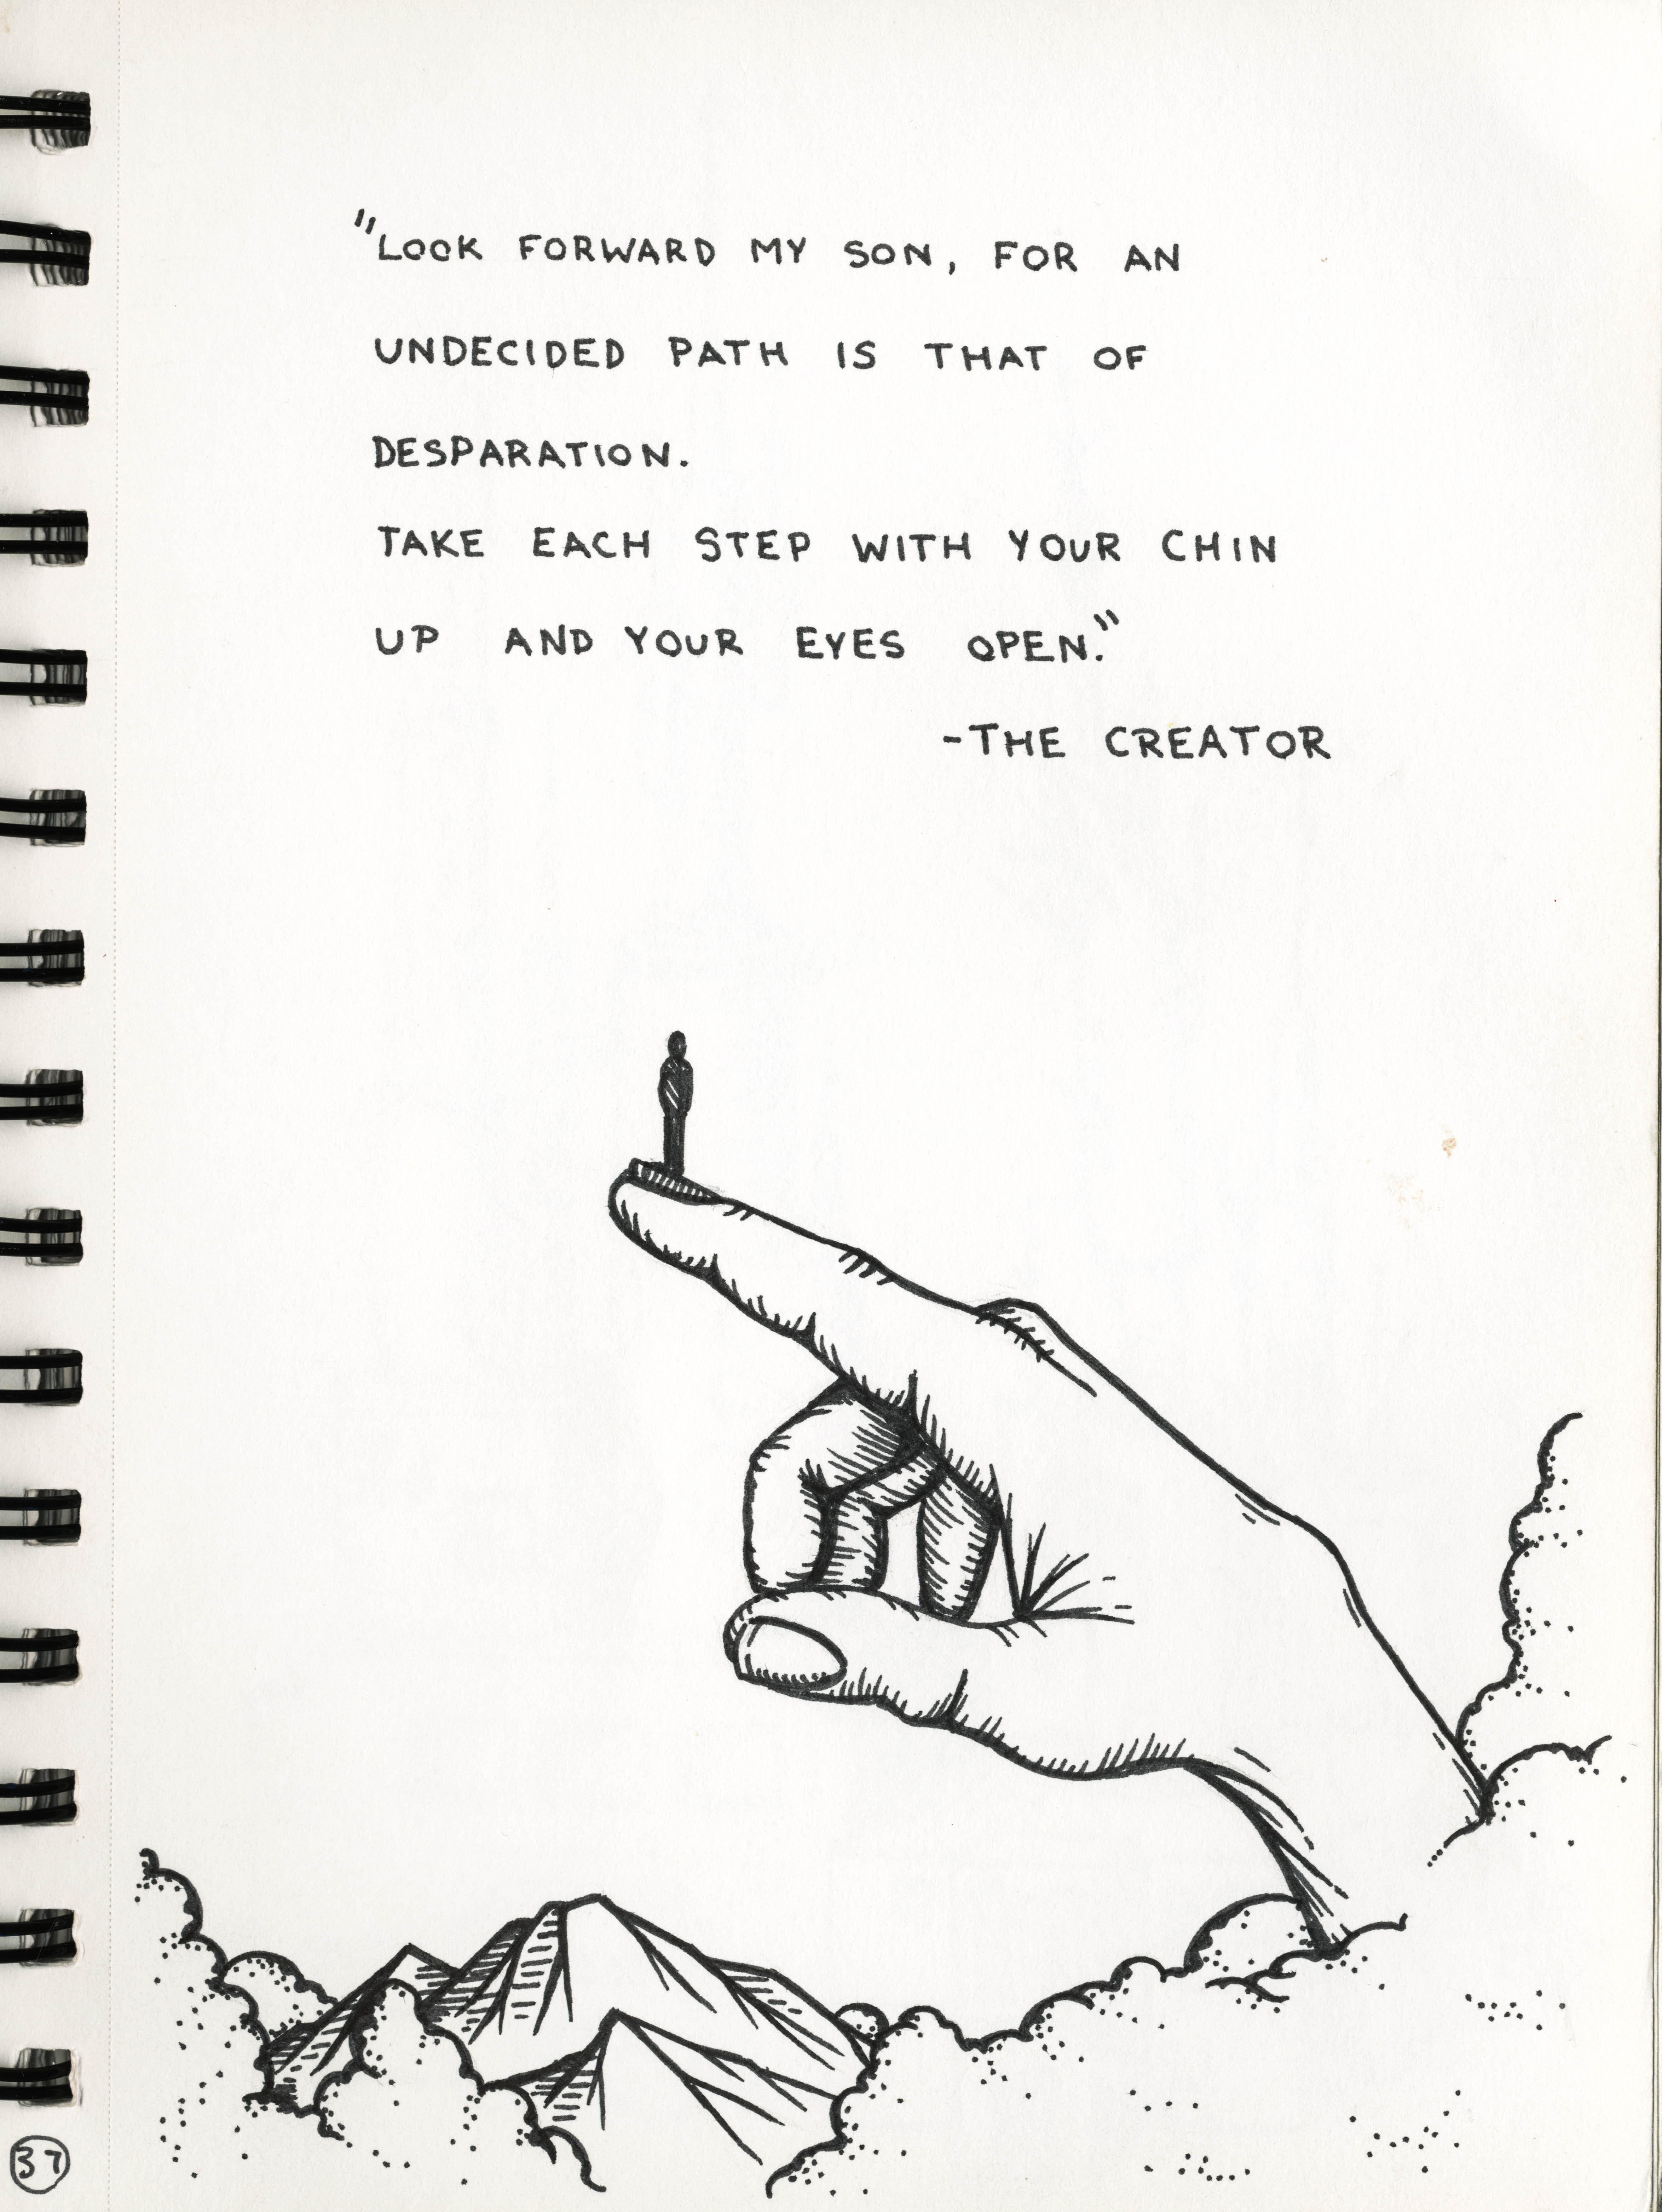 "LOOK FORWARD MY SON, FOR AN
UNDECIDED PATH IS THAT OF
DESPARATION.
TAKE EACH STEP WITH YOUR CHIN
UP AND YOUR EYES OPEN."
-THE CREATOR
37